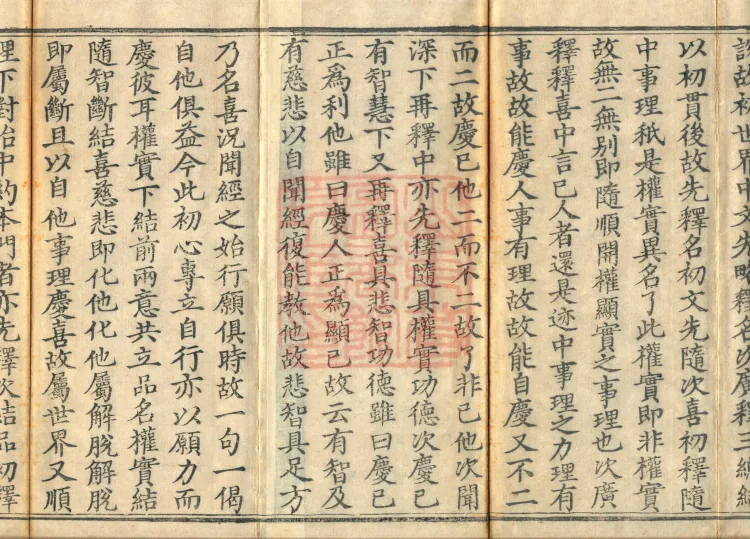 故初世界中文先略釋名次廣釋三總結
以初貫後故先釋名初文先隨次喜初釋隨
中事理秖是權實異名了此權實即非權實
故無二無別即隨順開權顯實之事理也次廣
釋釋喜中言已人者還是迹中事理之力理有
事故故能慶人事有理故故能自慶又不二
而二故慶已他二而不二故了非已他次聞
深下再釋中亦先釋隨具權實功德次慶已
有智慧下又再釋喜具悲智功德雖曰慶已
正為利他雖曰慶人正為顯已故云有智及
有慈悲以自聞經復能教他故悲智具足方
乃名喜況聞經之始行願俱時故一句一偈
自他俱益今此初心專立自行亦以願力而
慶彼耳權實下結前兩意共立品名權實結
隨智斷結喜慈悲即化他化他屬解脫解脫
即屬斷且以自他事理慶喜故屬世界又順
理下對治中約本門者亦先釋次結品初釋